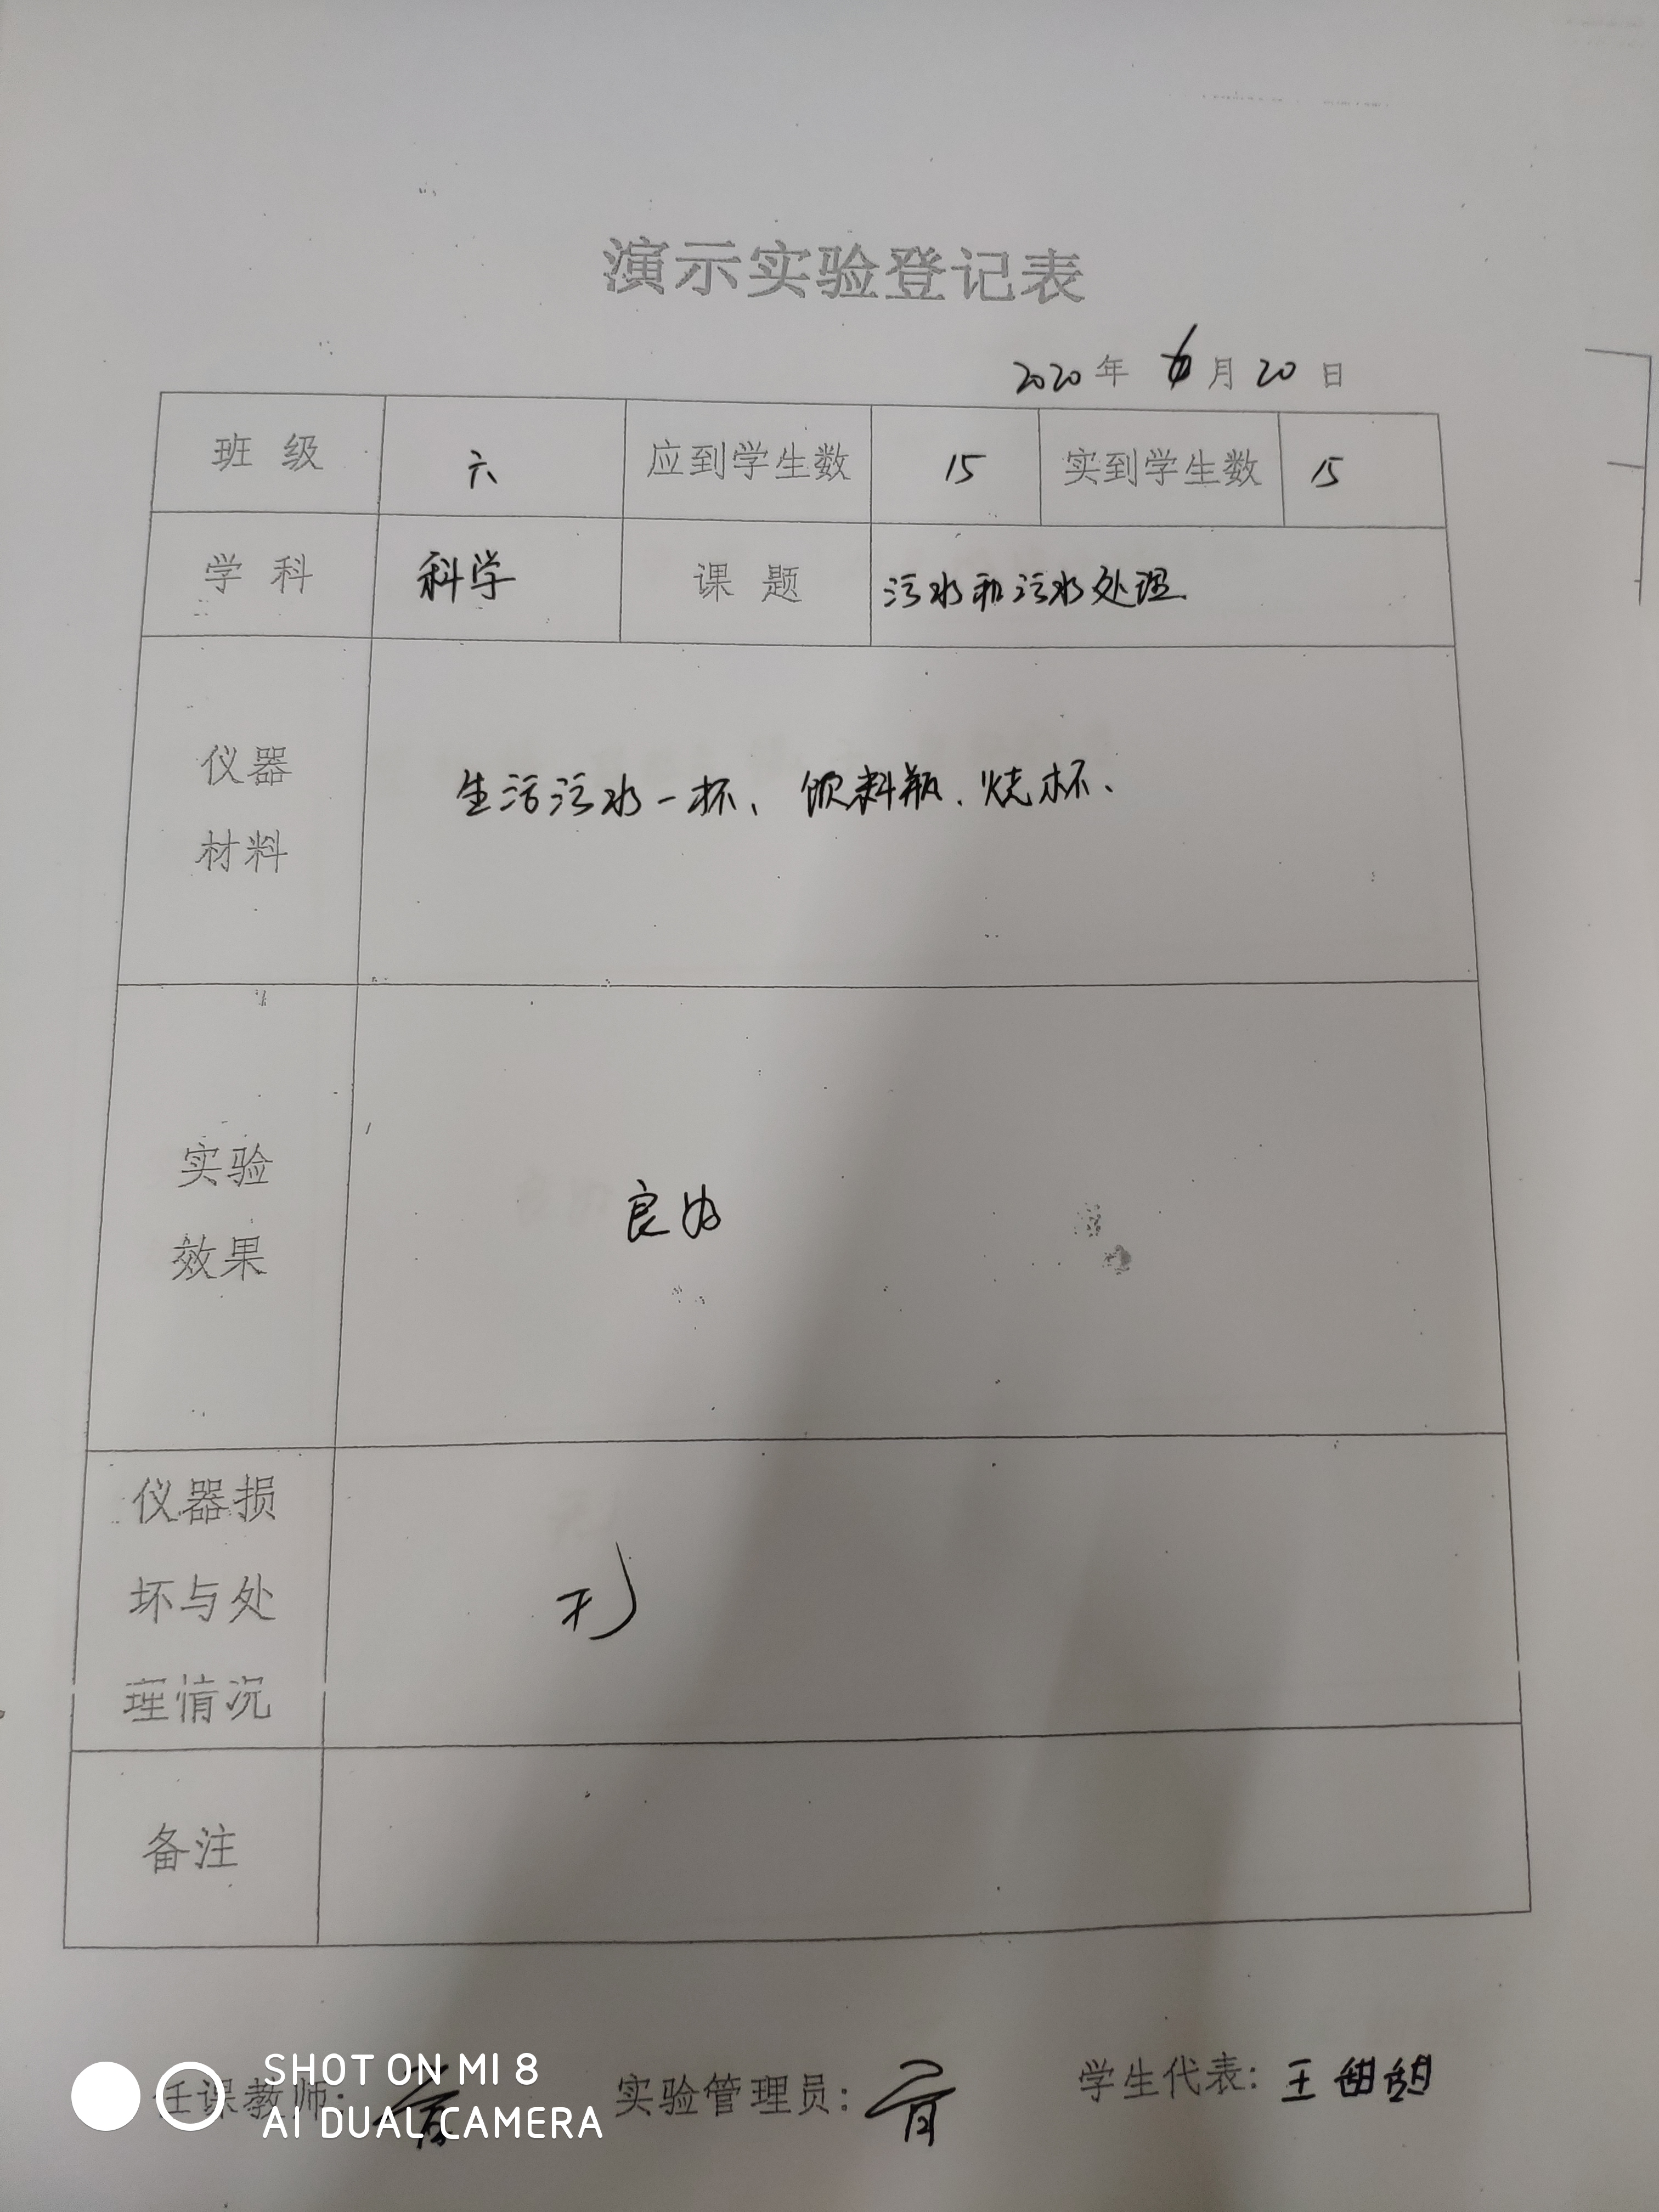 演示实验登记表
2020年 月20日
班级 六 应到学生数 15 实到学生数 15
学科 科学 课题 污水和污水处理
仪器
材料
生活污水一杯、饮料瓶、烧杯、
实验
效果
良好
仪器损
坏与处
理情况
备注
任课教师:
实验管理员:
学生代表: 王
SHOT ON MI 8
AI DUAL CAMERA